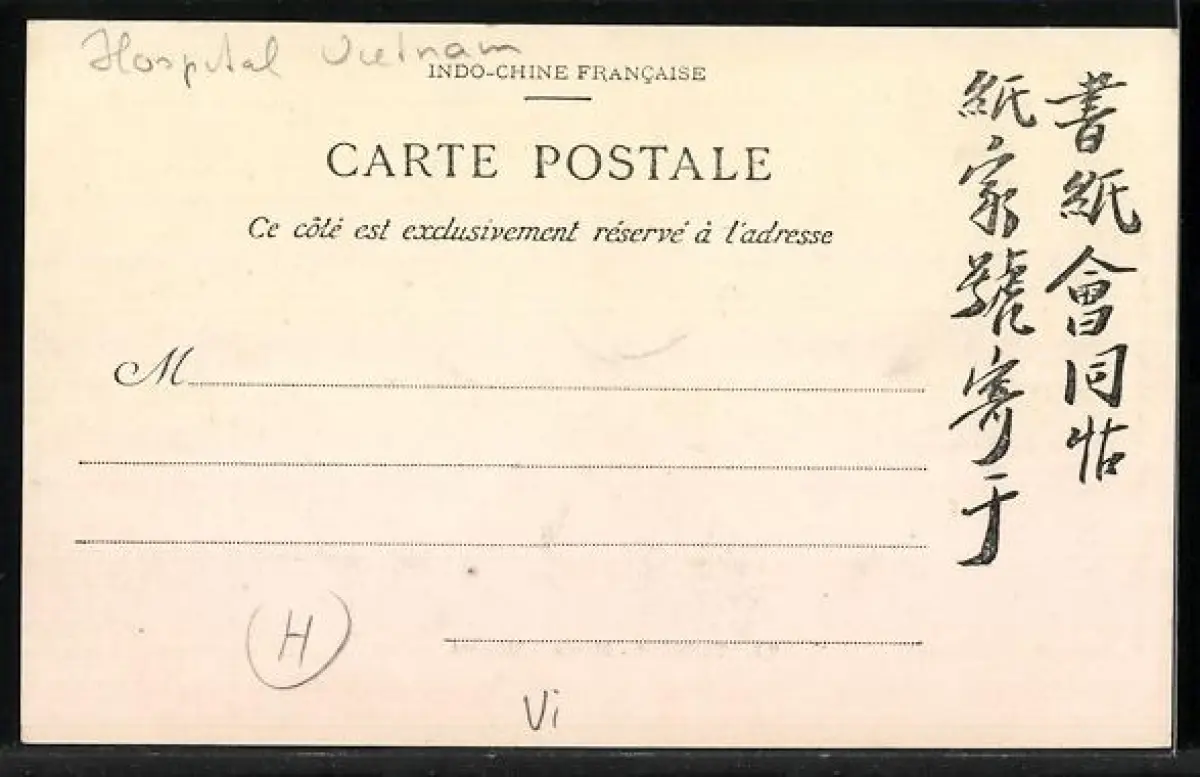 Hospital Vietnam
INDO-CHINE FRANÇAISE
CARTE POSTALE
Ce côté est exclusivement réservé à l'adresse
M
書紙會同帖
紙家號寄于
H
Vi